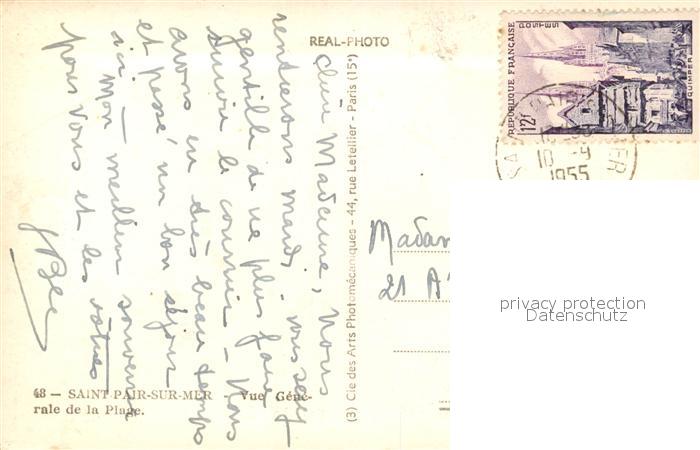 REAL-PHOTO
Chère Madame, Nous
rentrerons Mardi, vous seriez
gentille de ne plus faire
suivre le courrier - Nous
avons eu très beau temps
et passé un bon séjour
ici - meilleur souvenir
pour vous et les vôtres
(3) Cie des Arts Photomécaniques - 44, rue Letellier - Paris (15e)
48 - SAINT-PAIR-SUR-MER - Vue Géné-
rale de la Plage.
POSTES
REPUBLIQUE FRANÇAISE
QUIMPER
12f
10 -9
1955
Madam
21 A
privacy protection
Datenschutz